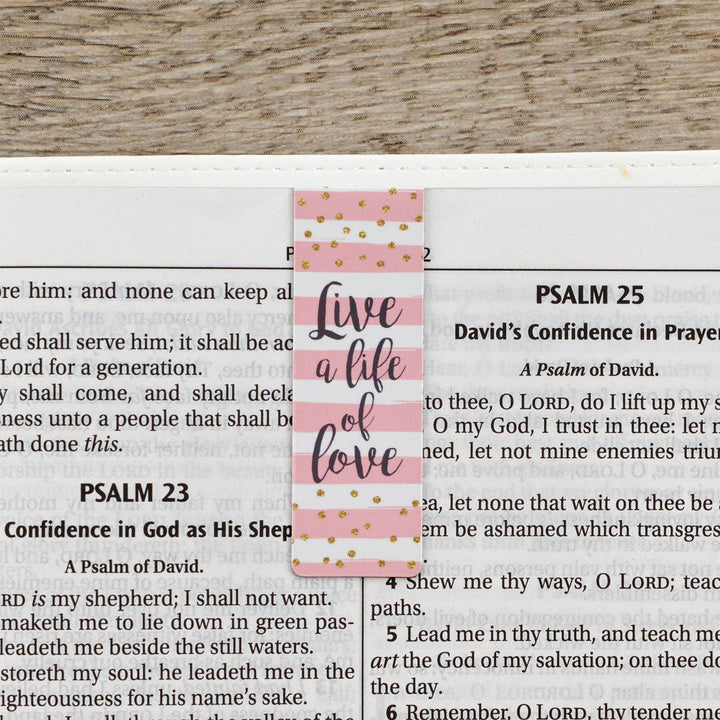 Live
a life
of
love
ore him: and none can keep al
ed shall serve him; it shall be ac
Lord for a generation.
y shall come, and shall decla
sness unto a people that shall be
ath done this.
PSALM 23
Confidence in God as His Shep
A Psalm of David.
RD is my shepherd; I shall not want.
maketh me to lie down in green pas-
leadeth me beside the still waters.
storeth my soul: he leadeth me in the
ghteousness for his name's sake.
PSALM 25
David's Confidence in Prayer
A Psalm of David.
to thee, O LORD, do I lift up my s
O my God, I trust in thee: let m
ned, let not mine enemies trium
ea, let none that wait on thee be a
em be ashamed which transgress
4 Shew me thy ways, O LORD; teach
paths.
5 Lead me in thy truth, and teach me
art the God of my salvation; on thee do
the day.
6 Remember, O LORD, thy tender me